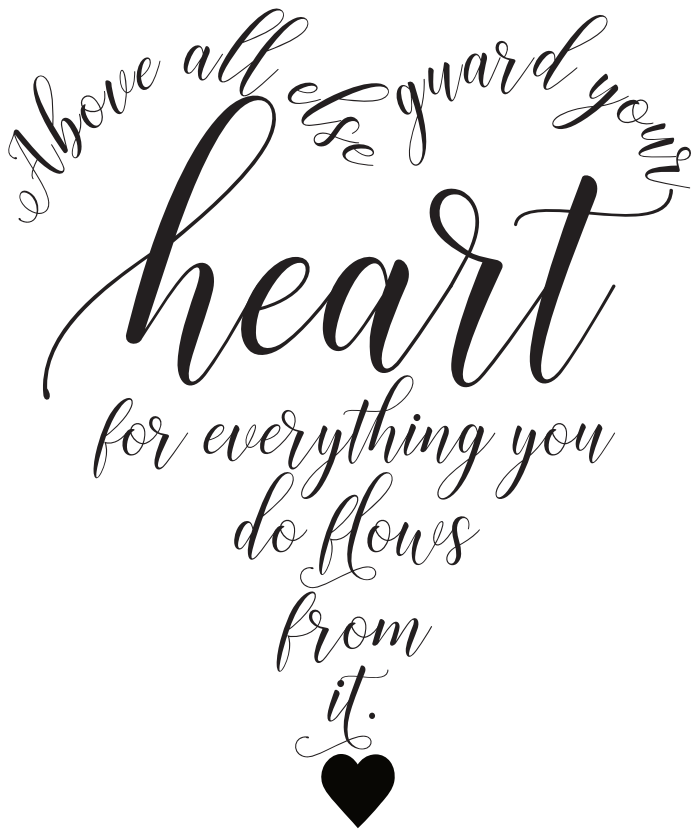 Above all else guard your
heart
for everything you
do flows
from
it.